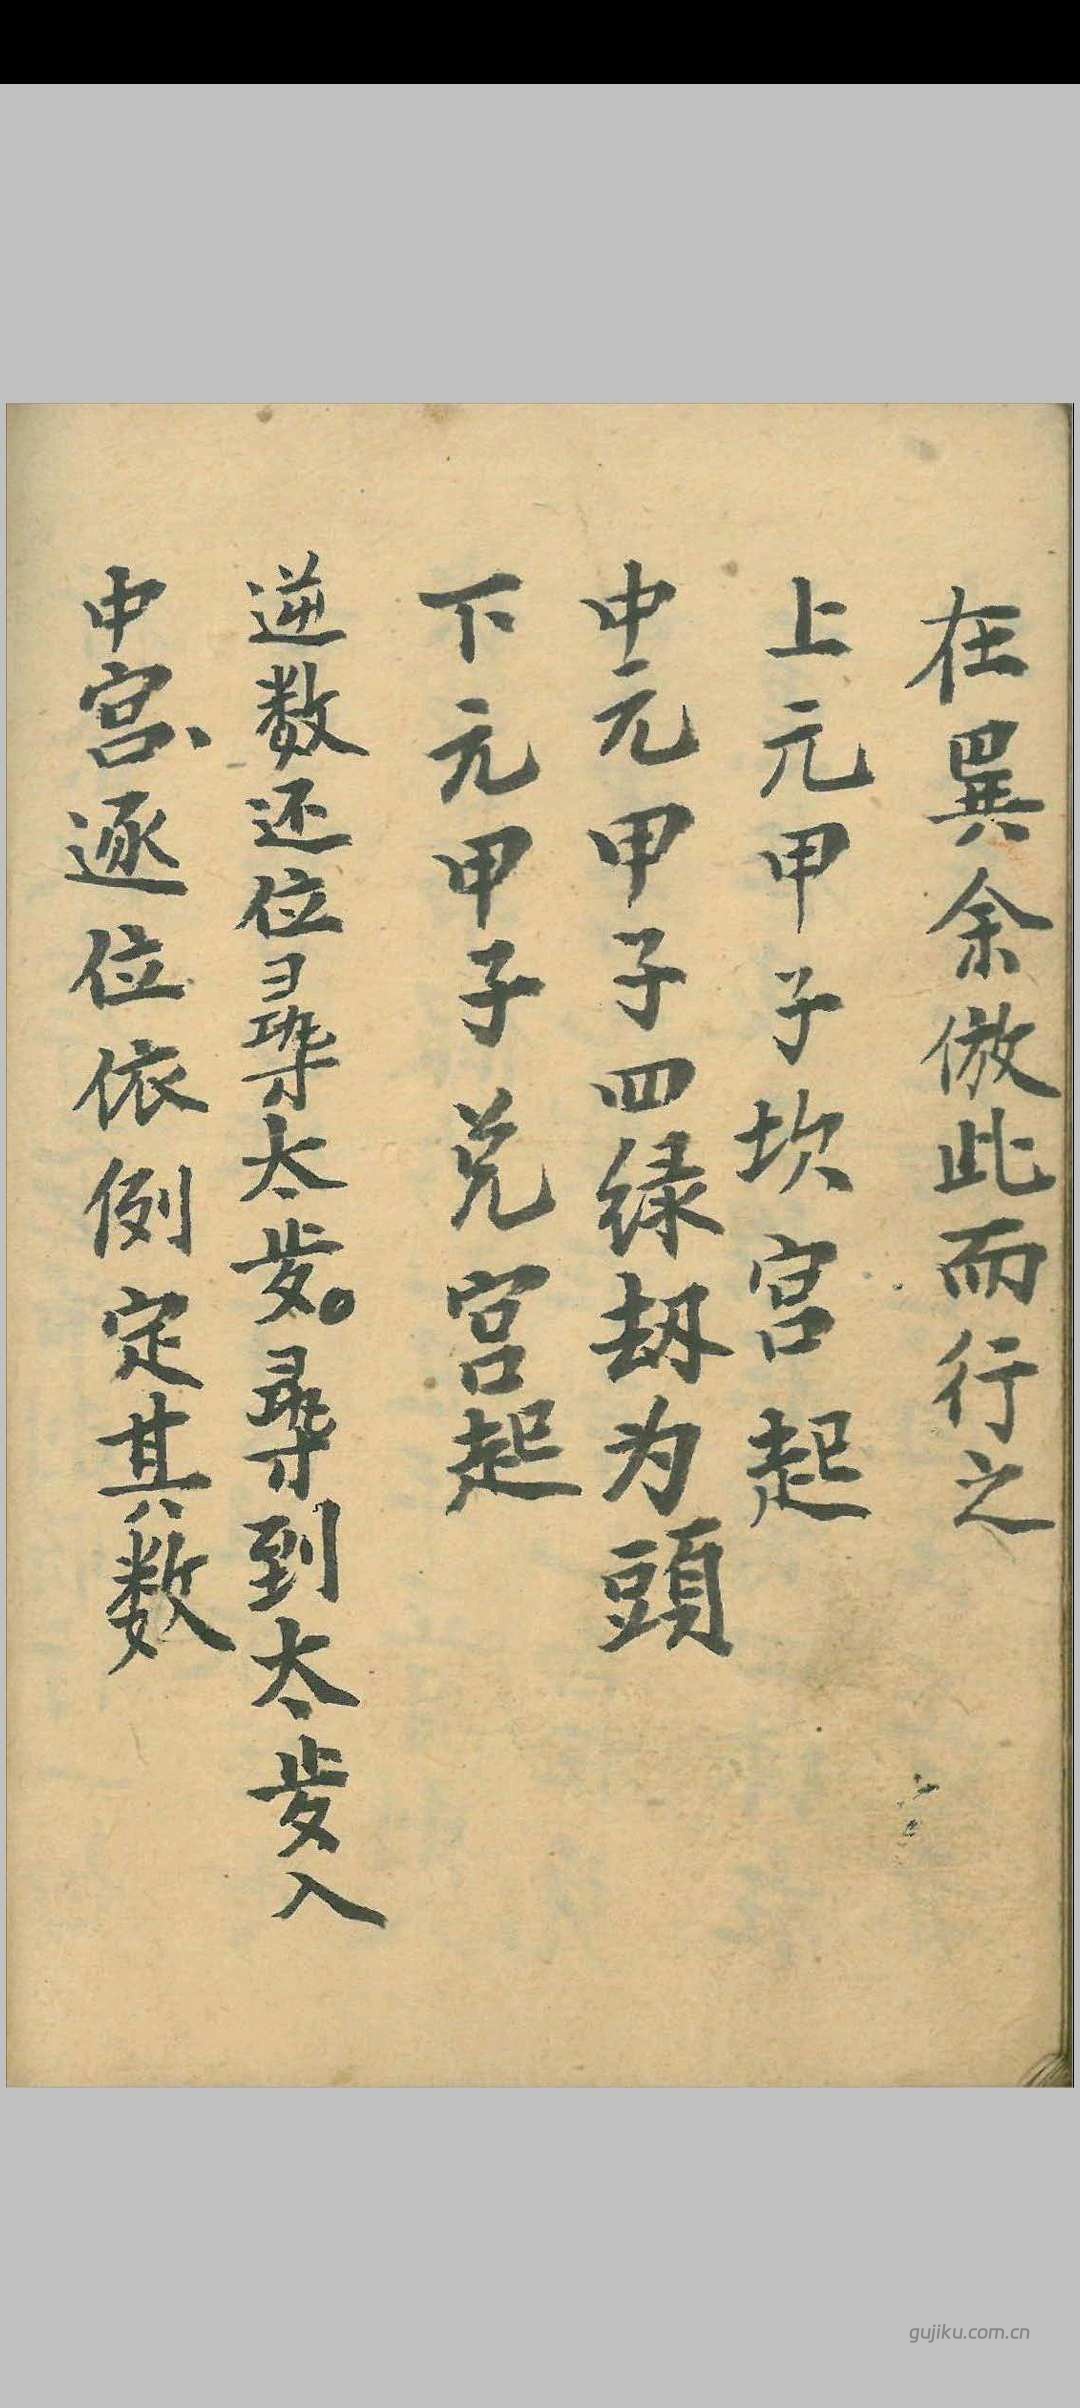 在巽余倣此而行之
上元甲子坎宫起
中元甲子四绿劫为頭
下元甲子兑宫起
逆数还位尋太岁。尋到太岁入
中宫、逐位依例定其数
gujiku.com.cn